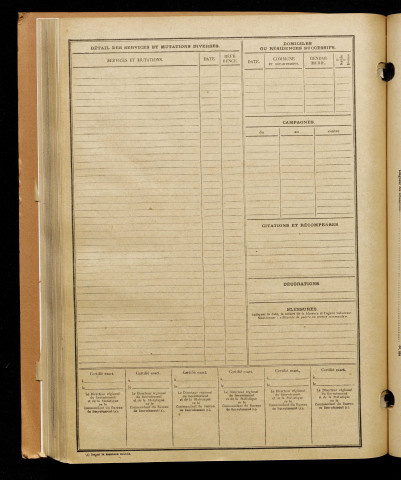 DÉTAIL DES SERVICES ET MUTATIONS DIVERSES.
SERVICES ET MUTATIONS.
DATE.
DOMICILES
OU RÉSIDENCES SUCCESSIFS.
DATE.
COMMUNE
CAMPAGNES.
CITATIONS ET RÉCOMPENSES
DÉCORATIONS
BLESSURES.
Certifié exact,
Certifié exact,
Certifié exact,
Certifié exact,
Certifié exact,
Certifié exact,
Le Directeur régional
du Recrutement
et de la Statistique
ou le
Commandant du Bureau
de Recrutement (1),
Le Directeur régional
du Recrutement
et de la Statistique
ou le
Commandant du Bureau
de Recrutement (1),
Le Directeur régional
du Recrutement
et de la Statistique
ou le
Commandant du Bureau
de Recrutement (1),
Le Directeur régional
du Recrutement
et de la Statistique
ou le
Commandant du Bureau
de Recrutement (1),
Le Directeur régional
du Recrutement
et de la Statistique
ou le
Commandant du Bureau
de Recrutement (1),
Le Directeur régional
du Recrutement
et de la Statistique
ou le
Commandant du Bureau
de Recrutement (1),
(1) Rayer la mention inutile.